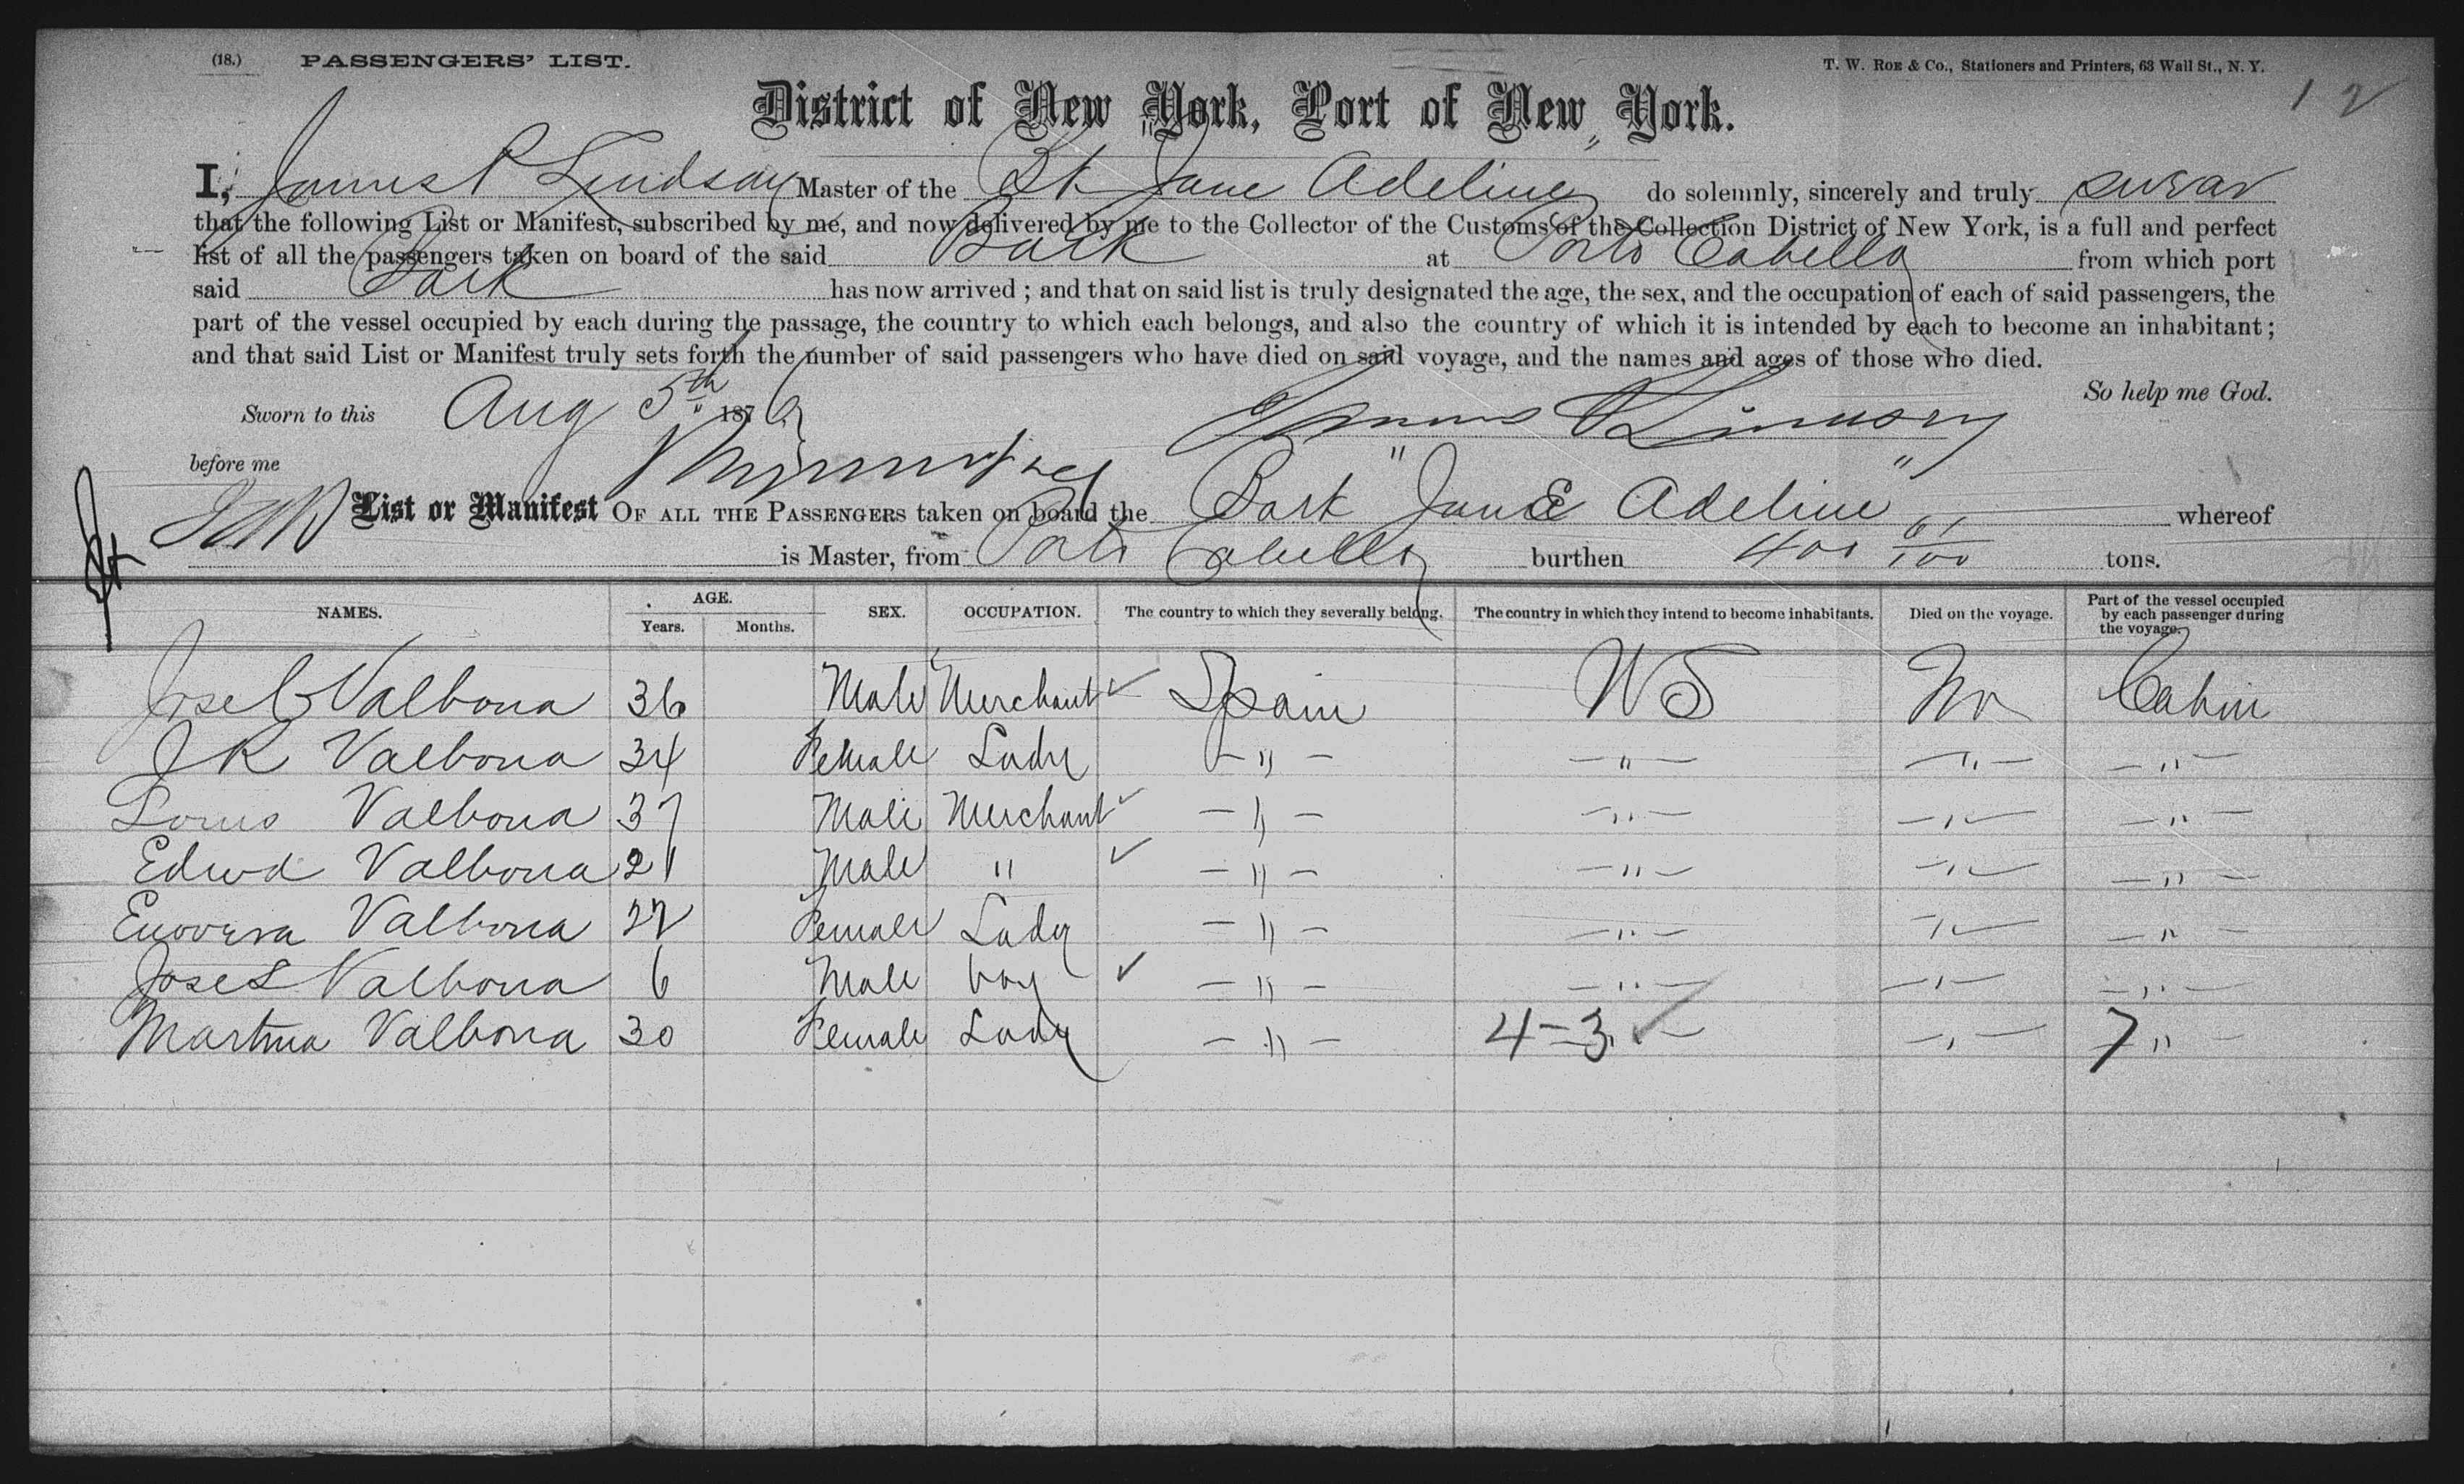 (18.) PASSENGERS' LIST.
T. W. ROE & Co., Stationers and Printers, 63 Wall St., N. Y.
1 2
District of New York, Port of New York.
I, James P Lindsay Master of the Bk "Jane Adeline" do solemnly, sincerely and truly swear
that the following List or Manifest, subscribed by me, and now delivered by me to the Collector of the Customs of the Collection District of New York, is a full and perfect
list of all the passengers taken on board of the said Bark at Porto Cabello from which port
said Bark has now arrived ; and that on said list is truly designated the age, the sex, and the occupation of each of said passengers, the
part of the vessel occupied by each during the passage, the country to which each belongs, and also the country of which it is intended by each to become an inhabitant ;
and that said List or Manifest truly sets forth the number of said passengers who have died on said voyage, and the names and ages of those who died.
So help me God.
Sworn to this Aug 5th 1876
before me
List or Manifest OF ALL THE PASSENGERS taken on board the Bark "Jane Adeline" whereof
is Master, from Porto Cabello burthen 400 61/100 tons.
NAMES. AGE. Years. Months. SEX. OCCUPATION. The country to which they severally belong. The country in which they intend to become inhabitants. Died on the voyage. Part of the vessel occupied by each passenger during the voyage.
Jose C Valbona 36 Male Merchant ✓ Spain US No Cabin
J R Valbona 34 Female Lady - " - - " - - " - - " -
Louis Valbona 37 Male Merchant ✓ - " - - " - - " - - " -
Edwd Valbona 21 Male " ✓ - " - - " - - " - - " -
Valbona 22 Female Lady - " - - " - - " - - " -
Jose L Valbona 6 Male boy ✓ - " - - " - - " - - " -
Martina Valbona 30 Female Lady - " - 4-3 ✓ - " - 7 "